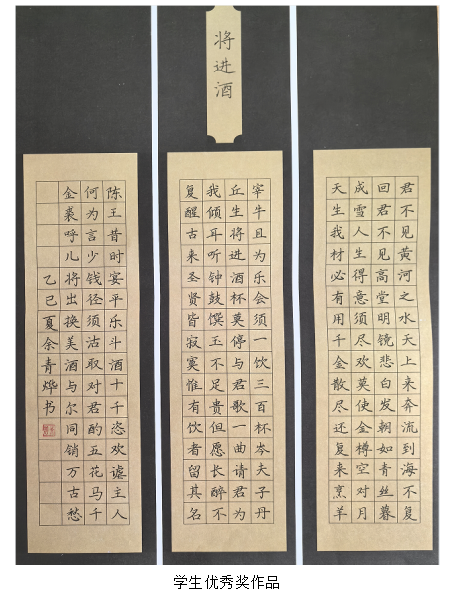 将进酒
君不见黄河之水天上来奔流到海不复
回君不见高堂明镜悲白发朝如青丝暮
成雪人生得意须尽欢莫使金樽空对月
天生我材必有用千金散尽还复来烹羊
宰牛且为乐会须一饮三百杯岑夫子丹
丘生将进酒杯莫停与君歌一曲请君为
我倾耳听钟鼓馔玉不足贵但愿长醉不
复醒古来圣贤皆寂寞惟有饮者留其名
陈王昔时宴平乐斗酒十千恣欢谑主人
何为言少钱径须沽取对君酌五花马千
金裘呼儿将出换美酒与尔同销万古愁
乙巳夏余青烨书
学生优秀奖作品